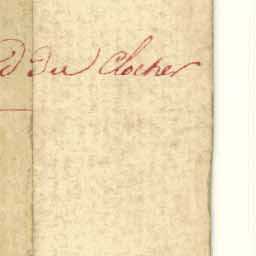 d du Clocher